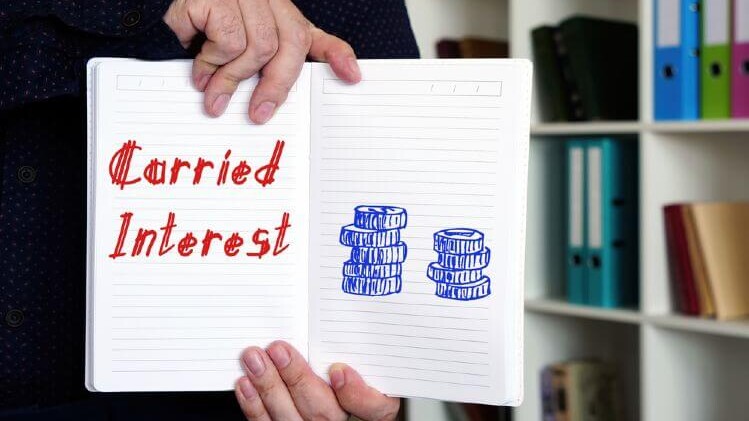 Carried
Interest